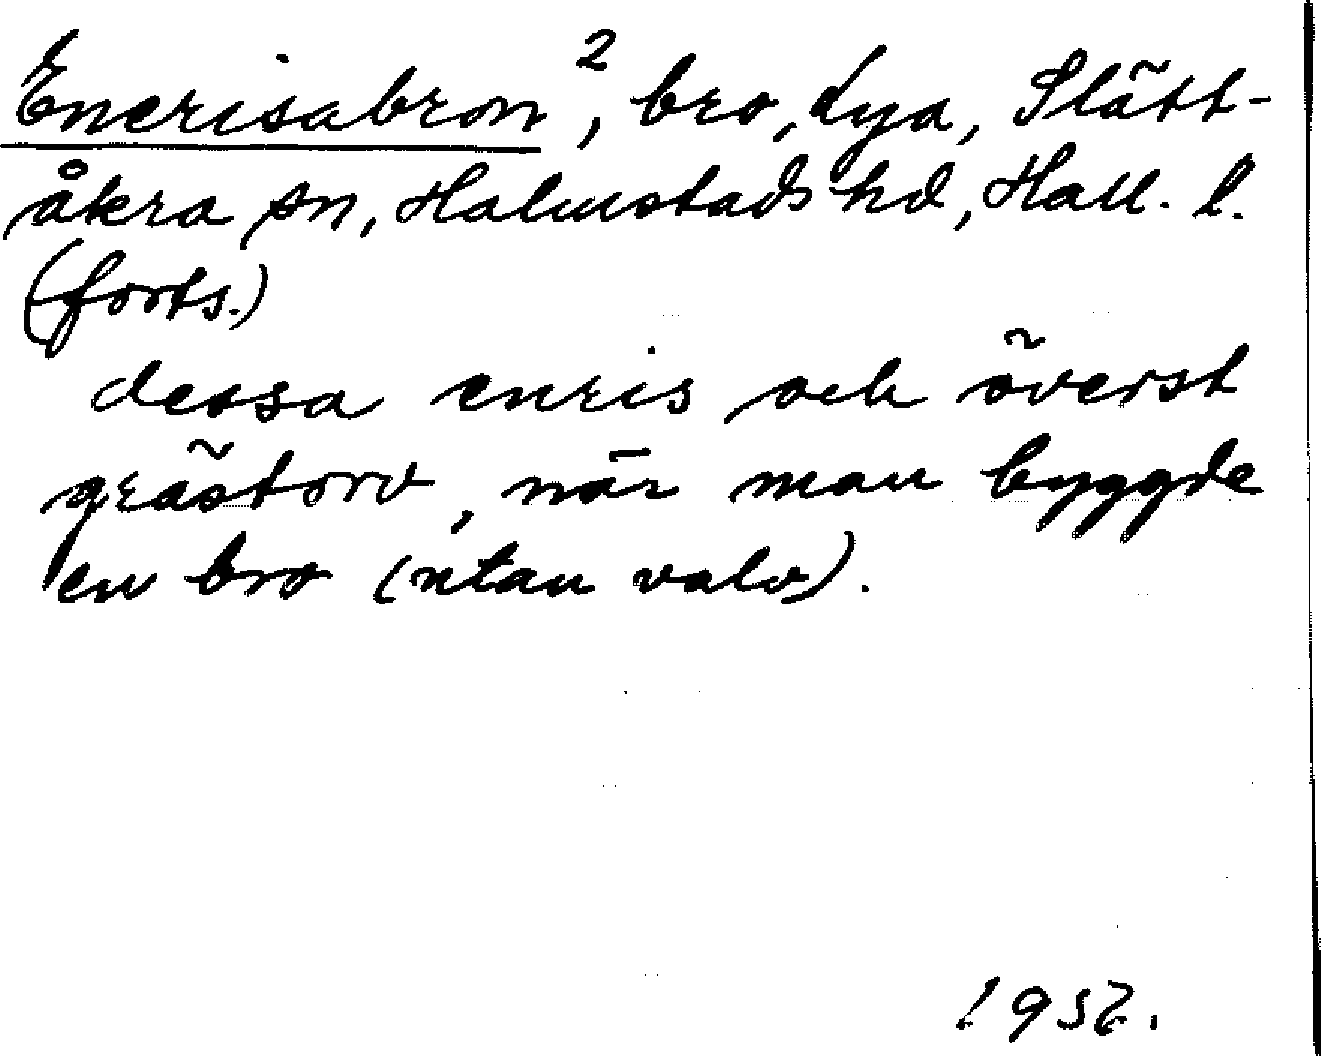 Enerisabron ², bro, Lya, Slätt-
åkra sn, Halmstads hd, Hall. l.
(forts.)
dessa enris och överst
grästorv, när man byggde
en bro (utan valv).